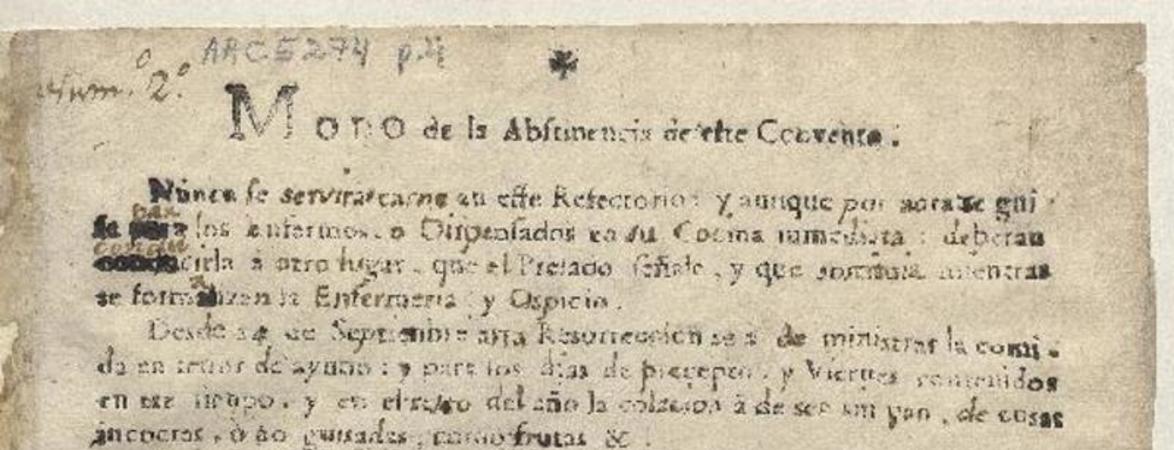 Num.º 2.º AAC 5274 p.4
MODO de la Abſtinencia de eſte Convento.
Nunca ſe servira carne en eſte Refectorio: y aunque por aora se gui
ſe para los Enfermos, o Diſpenſados en ſu Cocina inmediata: deberan
conducirla à otro lugar, que el Prelado ſeñale, y que mientras
se formalizen la Enfermeria, y Ospicio.
Desde 14 de Septiembre asta Resurreccion se à de ministrar la comi
da en tenor de ayuno: y para los dias de precepto, y Viernes contenidos
en ese tienpo, y en el resto del año la colacion à de ser sin pan, de cosas
incoctas, ò no guisadas, como frutas &.